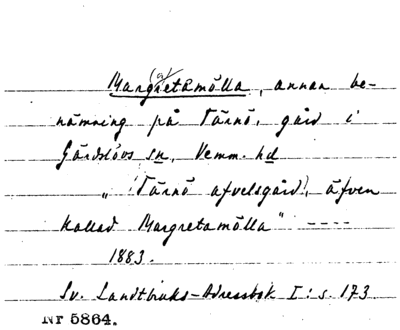 Marg(a)retamölla, annan be-
nämning på Tärnö, gård i
Gärdslövs sn, Vemm. hd
"(Tärnö afvelsgård), äfven
kallad Margretamölla" ----
1883.
Sv. Landtbruks-Adressbok I: s. 173
Nr 5864.